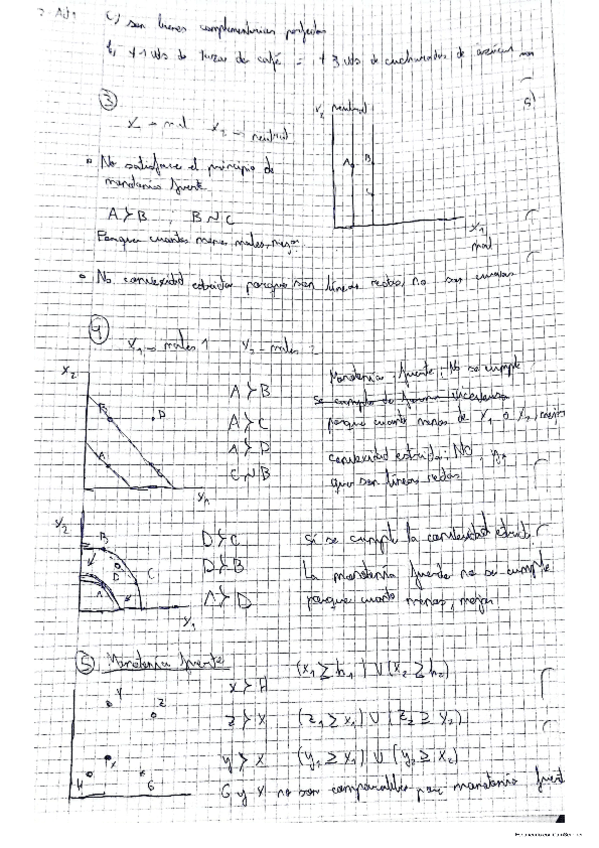 c) son bienes complementarios perfectos
+1 uds de tazas de café = +3 uds de cucharadas de azúcar
③
X₁ → mal   X₂ → neutral
X₂ neutral
A B
C
X₁
mal
• No satisface el principio de
monotonía fuerte.
A ≻ B , B ~ C
Porque cuantos menos males, mejor.
• No convexidad estricta porque son líneas rectas, no son curvas
④
X₁ → males 1   X₂ → males 2
X₂
B
D
A
C
X₁
A ≻ B
A ≻ C
A ≻ D
C ~ B
Monotonía fuerte: No se cumple
porque cuanto menos de X₁ o X₂, mejor
convexidad estricta: NO, ya
que son líneas rectas
X₂
B
D
C
A
X₁
D ≻ C
D ≻ B
A ≻ D
Sí se cumple la convexidad estrict
La monotonía fuerte no se cumple
porque cuanto menos, mejor
⑤ Monotonía fuerte
Y
Z
X
H
G
X ≻ H   (X₁ ≥ h₁) U (X₂ ≥ h₂)
Z ≻ X   (Z₁ ≥ X₁) U (Z₂ ≥ X₂)
Y ≻ X   (Y₁ ≥ X₁) U (Y₂ ≥ X₂)
G y X no son comparables por monotonía fuert